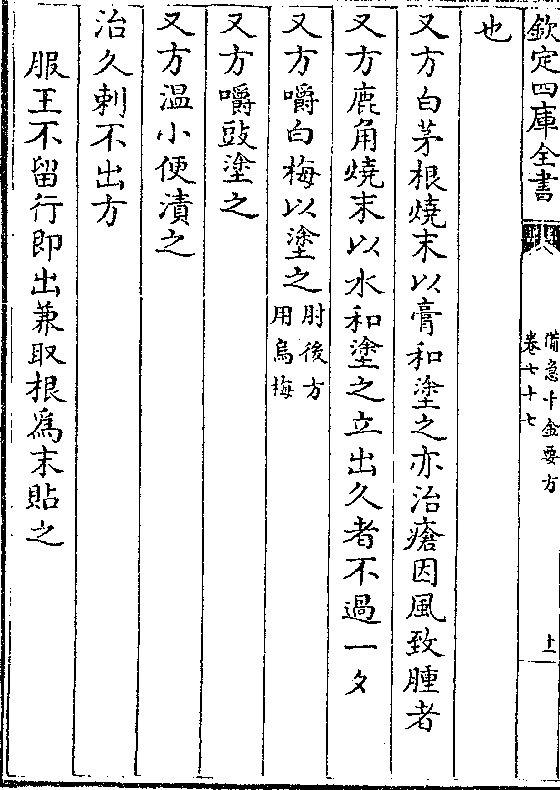 欽定四庫全書
備急千金要方
卷七十七
十一
也
又方白茅根燒末以膏和塗之亦治瘡因風致腫者
又方鹿角燒末以水和塗之立出久者不過一夕
又方嚼白梅以塗之肘後方
用烏梅
又方嚼豉塗之
又方溫小便漬之
治久刺不出方
服王不留行即出兼取根為末貼之